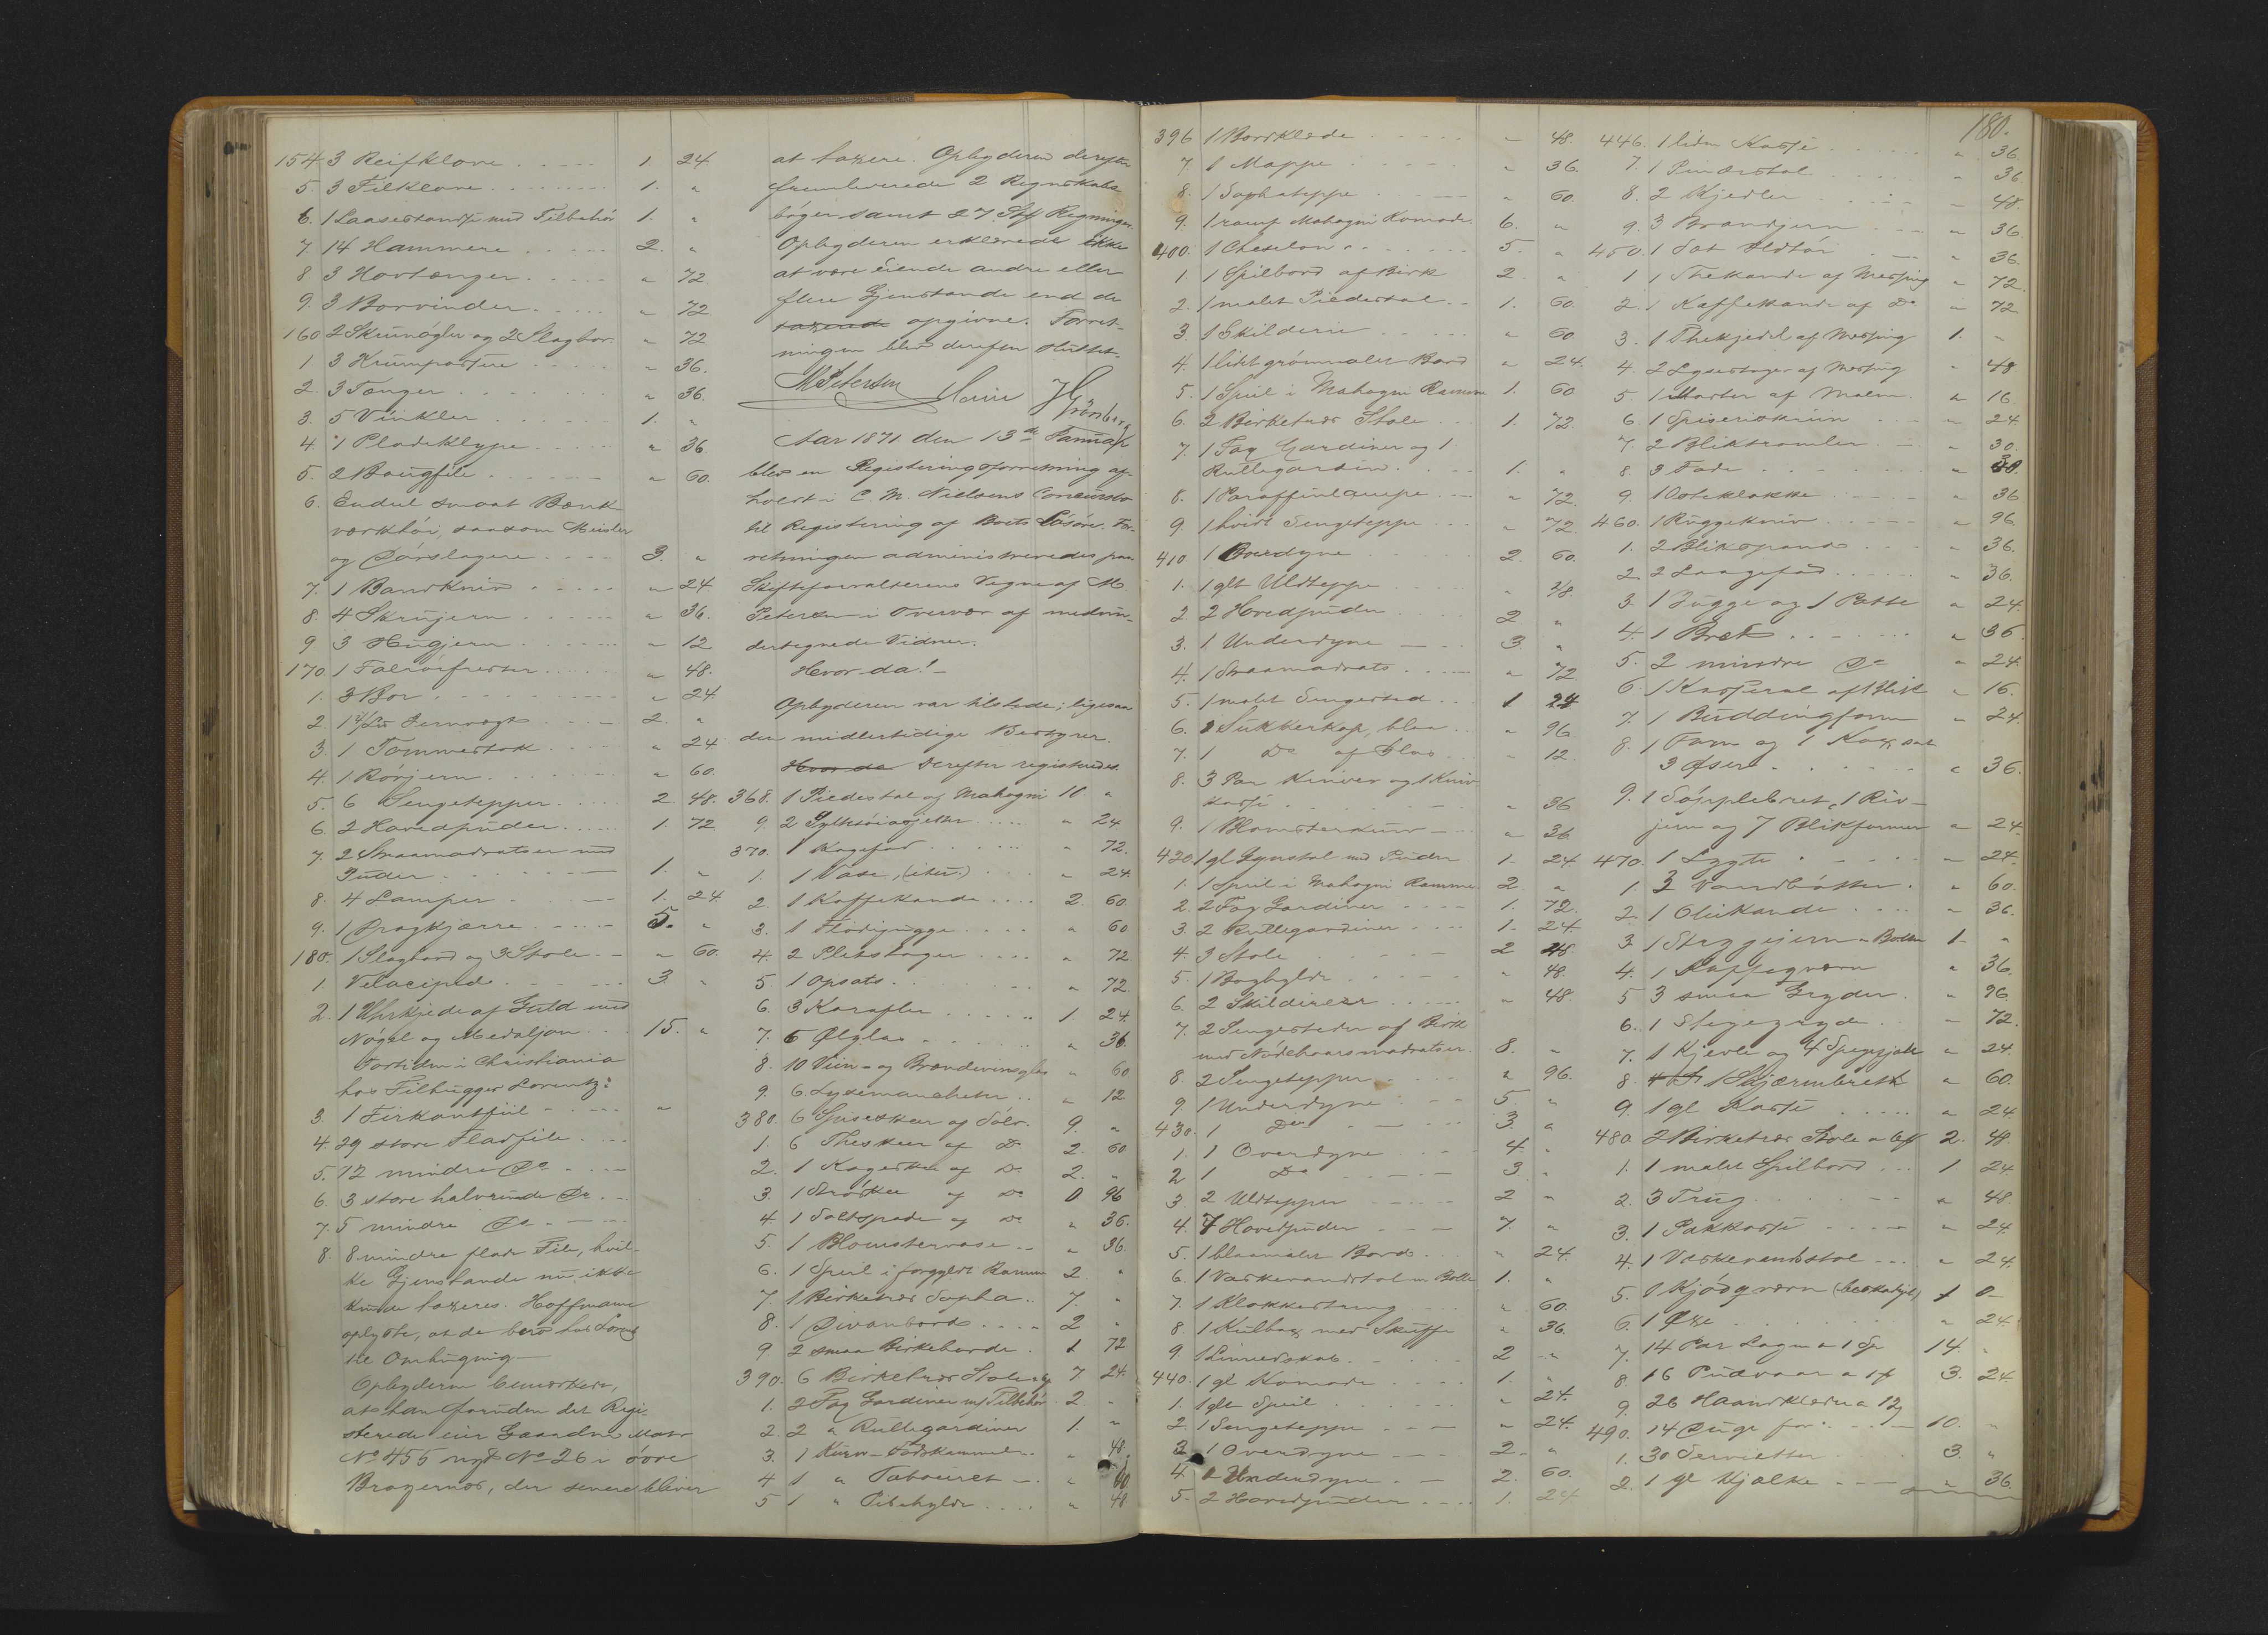 154 3 Reifklove 1. 24
5. 3 Filklove 1. "
6. 1 Laasestandse med Tilbehör 1. "
7 14 Hammere 2. "
8 3 Hovtænger " 72
9. 3 Borvinder " 72
160 2 Skrunögler og 2 Slagbor " 72
1 3 Krumpassere " 36.
2. 3 Tænger " 36.
3. 5 Vinkler 1. "
4. 1 Pladeklype " 36
5. 2 Baugfile " 60.
6. Endel smaat Bænk
værktöi, saasom Meisler
og Dörslagere 3. "
7. 1 Bandkniv " 24
8. 4 Skrujern " 36.
9 3 Hugjern " 12
170. 1 " 48.
1. 3 Bor " 24
2 1 Jernvægt 2. "
3. 1 Tommestok " 24
4. 1 Rörjern " 60.
5. 6 Sengetepper 2 48.
6. 2 Hovedpuder 1. 72
7. 2 Straamadratser med
Puder 1. "
8. 4 Lamper 1. 24
9. 1 Dragkjærre 5. "
180. 1 Slagbord og 3 Stole " 60.
1. Velocipede 3. "
2. 1 Uhrkjede af Guld med
Nögel og Medaljon 15. "
Fortiden i Christiania
hos Filhugger Lorentz:
3. 1 Firkantfiil "
4. 29 store Fladfile
5. 12 mindre Do
6. 3 store halvrunde Do
7. 5 mindre Do
8. 8 mindre flade File, hvil-
ke Gjenstande nu ikke
kunde taxeres. Hoffmann
oplyste, at de bero hos Lorentz
til Omhugning
Opbyderen bemærkede,
at han foruden det Regi-
strerede eier Gaarden Matr
No 455 nyt No 26 i övre
Bragernæs, der senere bliver
at taxere. Opbyderen derefter
fremleverede 2 Regnskabs
böger samt 27 Stk Regninger.
Opbyderen erklærede ikke
at være eiende andre eller
flere Gjenstande end de
taxerede opgivne. Forret-
ningen blev derefter sluttet.
M Petersen
Aar 1871 den 13de Januar
blev en Registeringsforretning af-
holdt i C. M. Nielsens Concursbo
til Registering af Boets Lösöre. For-
retningen administreredes paa
Skifteforvalterens Vegne af M
Petersen i Overvær af medun-
dertegnede Vidner.
Hvor da!
Opbyderen var tilstede; ligesaa
den midlertidige Bestyrer.
Hvor da Derefter registredes.
368. 1 Piedestal af Mahogni 10. "
9. 2 Syltetöiasjetter " 24
370. 1 Kagefad " 72.
1. 1 Vase, (itu.) " 24
2. 1 Kaffekande 2. 60
3. 1 Flödejugge " 60
4. 2 Pletstager " 72
5. 1 Opsats " 72.
6. 3 Karafler 1. 24.
7. 6 Ölglas " 36
8. 10 Viin- og Brændevinsglas " 60
9. 6 Lysemanchetter " 12
380. 6 Spiseskeer af Sölv. 9. "
1. 6 Theskeer af Do 2. 60
2. 1 Kageske af Do 2. "
3. 1 Ströske af Do 0 96
4. 1 Saltspade af Do " 36.
5. 1 Blomstervase " 36.
6. 1 Speil i forgyldt Ramme 2. "
7. 1 Birketræs Sopha 7. "
8. 1 Divanbord 2 "
9. 2 smaa Birkeborde 1 72
390. 6 Birketræs Stole 7 24.
1. 2 Fag Gardiner m/ Tilbehör 2. "
2. 2 " Rullegardiner 1. "
3. 1 Kurv-Fodskammel " 48.
4 1 " Tabouret " 60.
5 1 " Pibehylde " 48
396 1 Bordklæde " 48.
7 1 Mappe " 36.
8. 1 Sophateppe " 60.
9. 1 Mahogni Komode 6. "
400. 1 Cheselon 5. "
1. 1 Spilbord af Birk 2 "
2. 1 malet Piedestal 1. 60.
3. 1 Skilderi " 60
4. 1 lidet grönmalet Bord " 24.
5. 1 Speil i Mahogni Ramme 1. 60
6. 2 Birketræs Stole 1. 72.
7. 1 Fag Gardiner og 1
Rullegardin 1. "
8. 1 Paraffinlampe " 72.
9. 1 hvidt Sengeteppe " 72.
410 1 Overdyne 2. 60.
1. 1 glt Uldteppe " 48
2. 2 Hovedpuder 2 "
3. 1 Underdyne 3. "
4. 1 Straamadrats " 72
5. 1 malet Sengested 1 24
6. 1 Sukkerkop, blaa " 96
7. 1 Do af Glas " 12
8. 3 Par Kniver og 1 Kniv
kasse " 36
9. 1 Blomsterkurv " 36.
420 1 gl Gyngstol med Puder 1. 24.
1. 1 Speil i Mahogni Ramme 2 "
2. 2 Fag Gardiner 1. 72.
3. 2 Rullegardiner 1. 24.
4. 3 Stole 2 48.
5. 1 Boghylde " 48.
6. 2 Skilderier " 48.
7. 2 Sengesteder af Birk
med Nödehaarsmadratser 8. "
8. 2 Sengetepper " 96.
9. 1 Underdyne 5. "
430. 1 Do 3. "
1. 1 Overdyne 4. "
2 1 Do 3. "
3 2 Uldtepper 2 "
4. 7 Hovedpuder 7. "
5. 1 blaamalet Bord " 24.
6. 1 Vaskevandstol m Bolle 1. "
7. 1 Klokkestreng " 60.
8. 1 Kulbox med Skuffe " 36
9 1 Linnedskab 2 "
440. 1 gl Komode 1. "
1. 1 glt Speil " 24.
2. 1 Sengeteppe " 24.
3. 1 Overdyne 2 "
4. 2 Underdyne 2. 60.
5. 2 Hovedpuder 1. 24
180.
446. 1 liden Kasse " 36.
7. 1 Pindestol " 36
8. 2 Kjedler " 48
9. 3 Brandjern " 36
450. 1 Sæt Ildtöi " 36.
1 1 Thekande af Messing " 72.
2. 1 Kaffekande af Do " 72
3. 1 Thekjedel af Messing 1. "
4. 2 Lysestager af Messing " 48
5 1 Morter af Malm " 16
6. 1 Spiseriskrin " 24.
7. 2 Bliktromler " 30.
8. 3 Fade "
9. 1 Osteklokke " 36
460. 1 Ruggekniv " 96.
1. 2 Blikspande " 36.
2. 2 Laagefad " 36.
3. 1 Jugge og 1 Botte " 24.
4. 1 Bret " 36.
5. 2 mindre Do " 24.
6. 1 Kasserol af Blik " 16.
7. 1 Buddingform " 24.
8. 1 Form og 1 Kar samt
3 Öser " 36.
9. 1 Söpplebret, 1 Riv-
jern og 7 Blikformer " 24.
470. 1 Lygte " 24.
1. 3 Vandbötter " 60.
2. 1 Oliekande " 36.
3. 1 Strygejern m Bolter 1. "
4. 1 Kaffeqværn " 36.
5 3 smaa Gryder " 96.
6. 1 Stegegryde " 72.
7. 1 Kjevle og 4 Spegefjæle " 24.
8. 1 Skjærmbrett " 60.
9. 1 gl Kasse " 24
480. 2 Birketræs Stole 2. 48.
1. 1 malet Spilbord 1 24
2. 3 Trug " 48.
3. 1 Pakkasse " 24.
4. 1 Vaskevandsstol " 24.
5. 1 Kjödqværn (beskadiget) 1 0
6. 1 Öxe " 24.
7. 14 Par Lagen a 1 Sp 14. "
8. 16 Pudevaar a 1 3. 24.
9. 26 Haandklæder a 12
490. 14 Duge for 10. "
1. 30 Servietter 3. "
2. 1 gl Kjælke " 36.